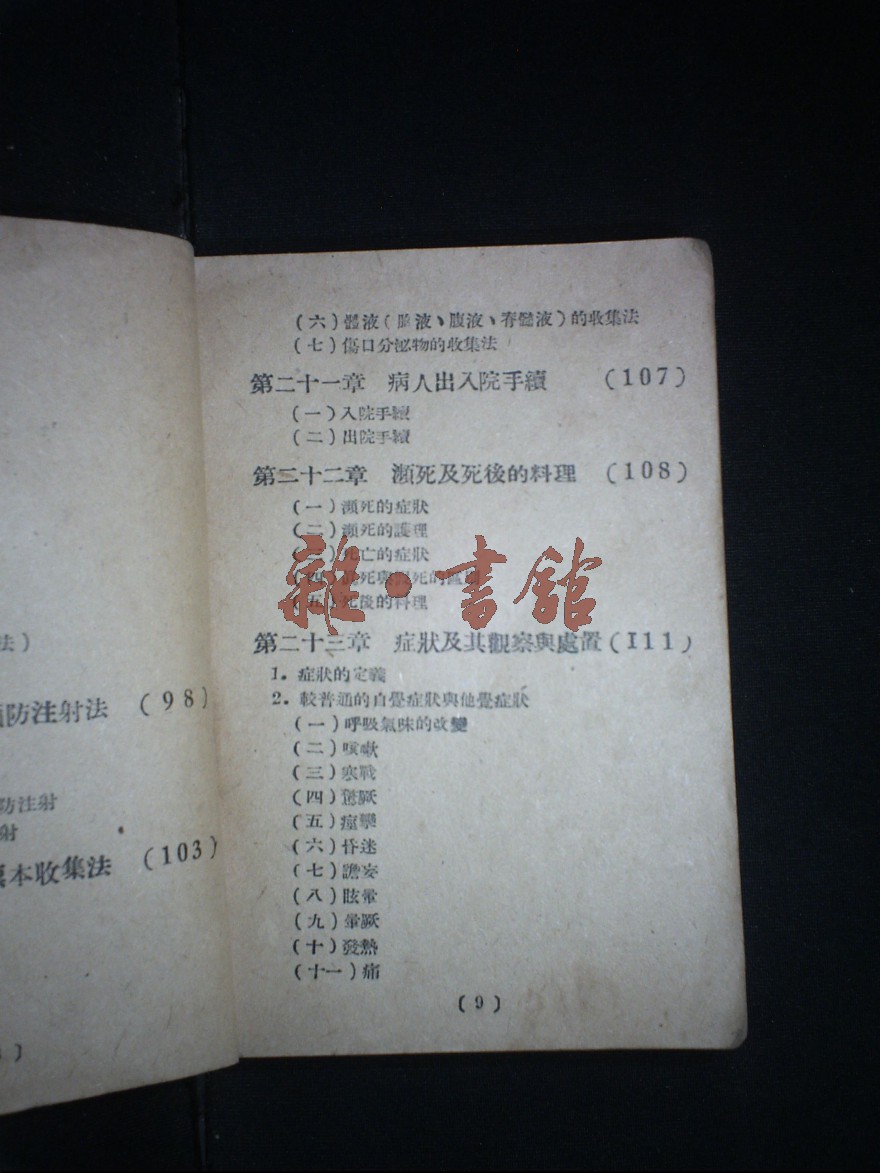 法)
防注射法 (98)
防注射
射
本收集法 (103)
(六)體液(胸液、腹液、脊髓液)的收集法
(七)傷口分泌物的收集法
第二十一章 病人出入院手續 (107)
(一)入院手續
(二)出院手續
第二十二章 瀕死及死後的料理 (108)
(一)瀕死的症狀
(二)瀕死的護理
(三)死亡的症狀
(四)死與死的
(五)死後的料理
雜·書館
第二十三章 症狀及其觀察與處置(111)
1. 症狀的定義
2. 較普通的自覺症狀與他覺症狀
(一)呼吸氣味的改變
(二)咳嗽
(三)寒戰
(四)驚厥
(五)痙攣
(六)昏迷
(七)譫妄
(八)眩暈
(九)暈厥
(十)發熱
(十一)痛
(9)